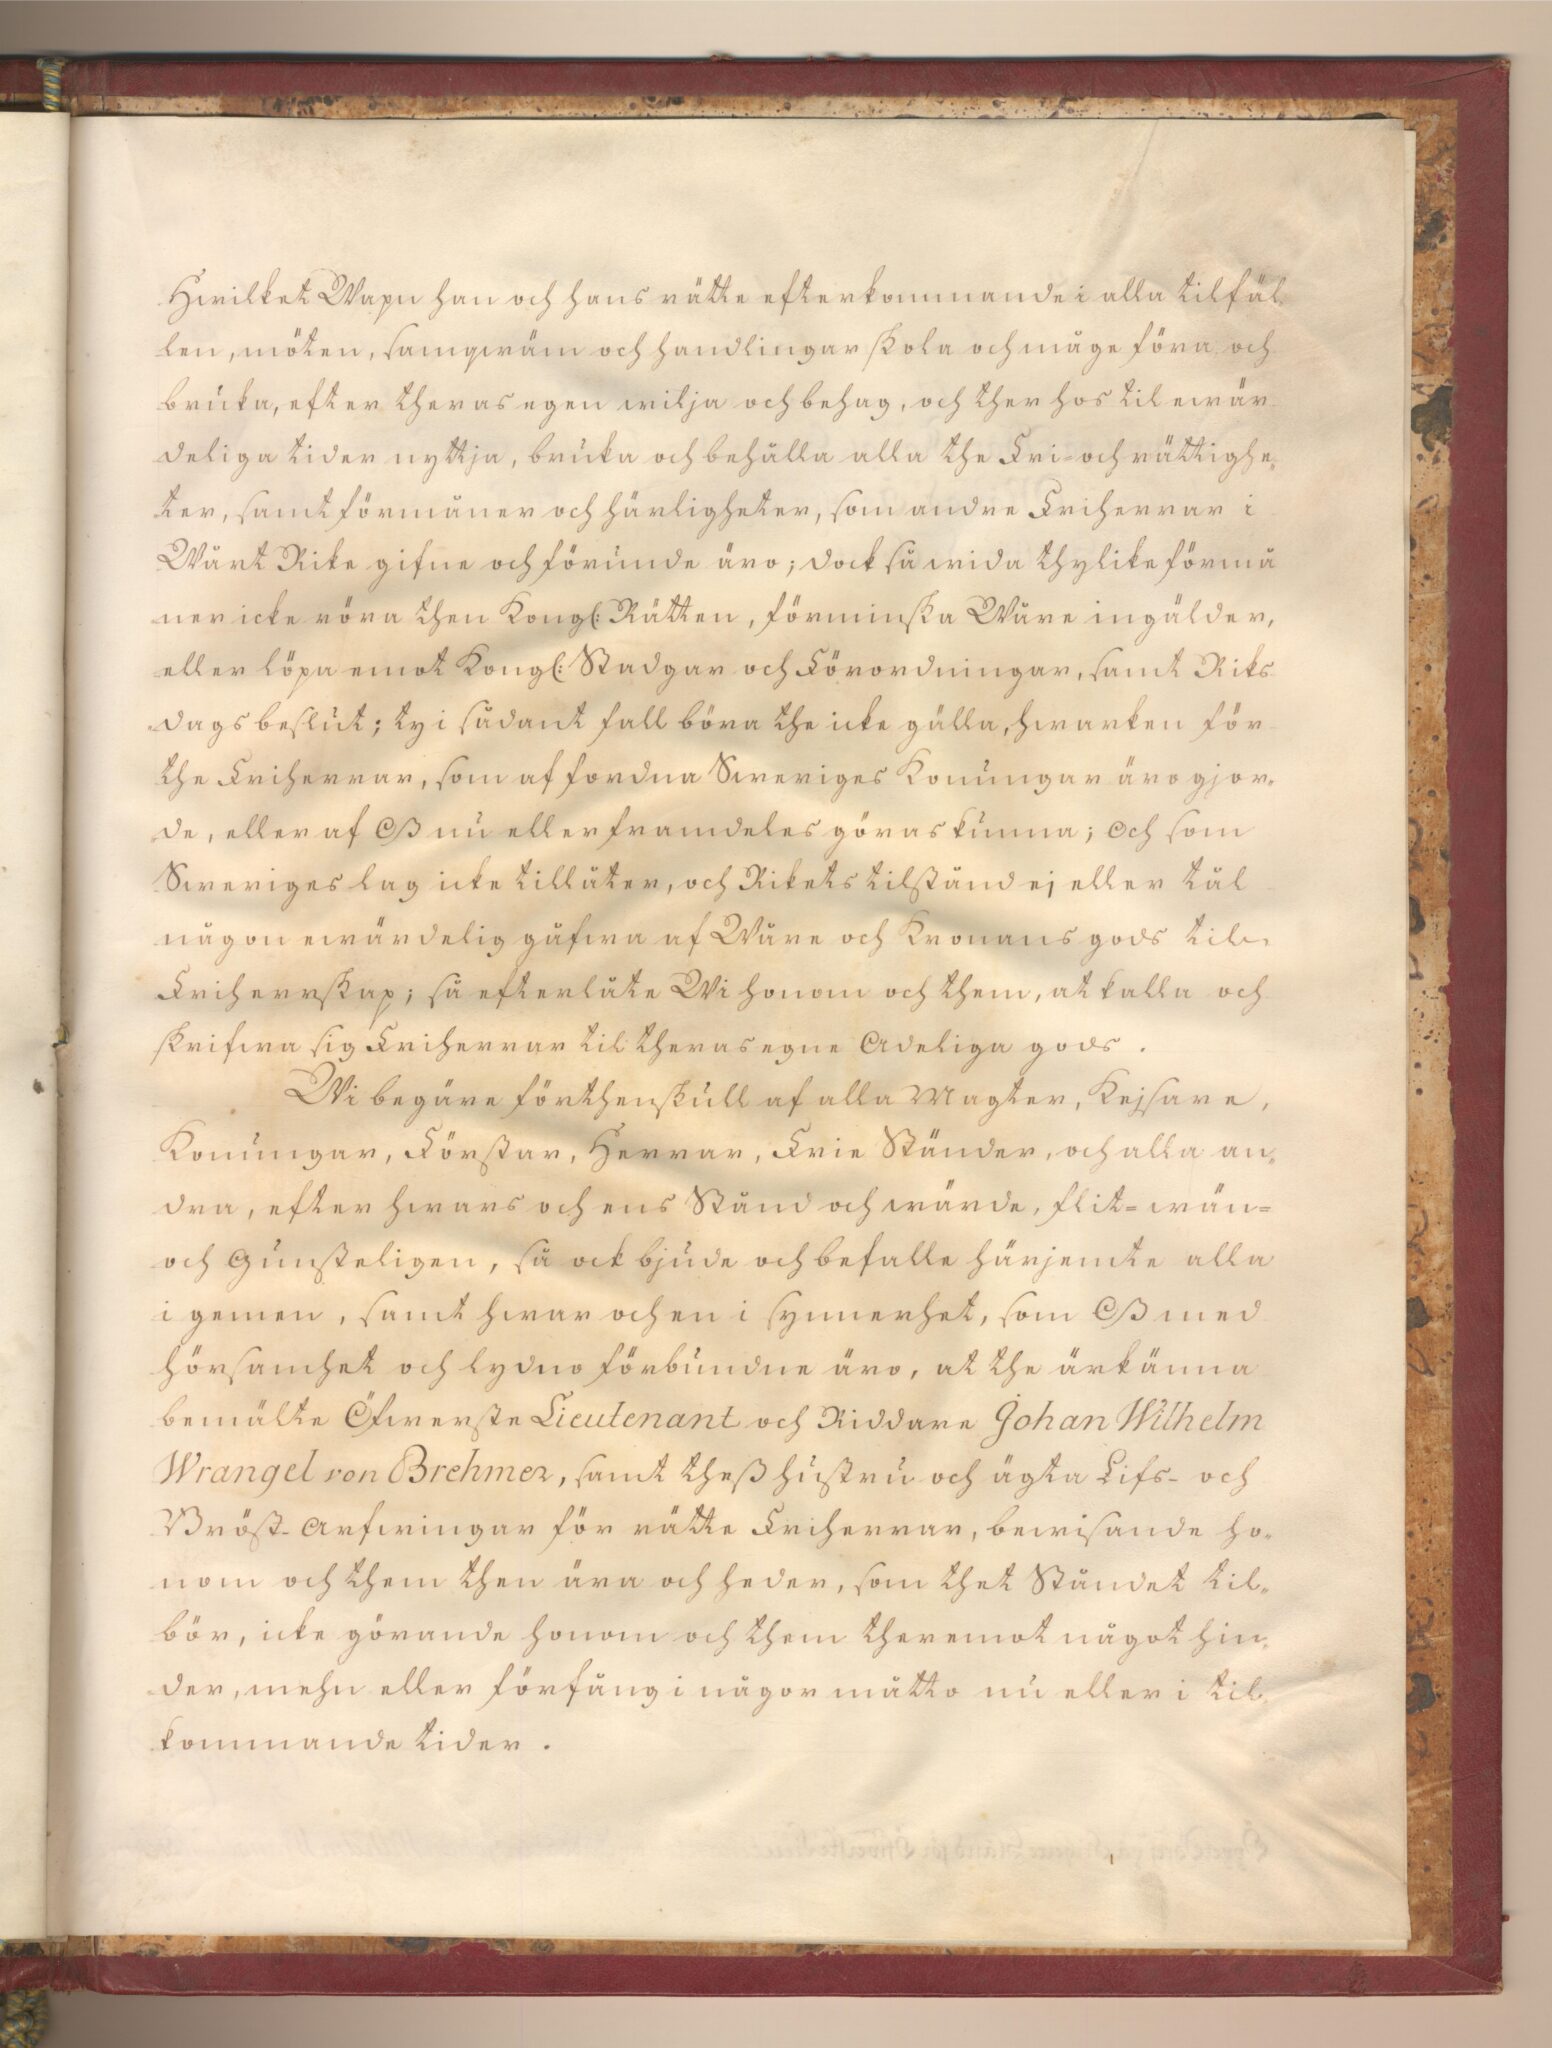 Hwilket Wapn han och hans rätte efterkommande i alla tilfäl
len, möten, samqwäm och handlingar skola och måge föra och
bruka, efter theras egen wilja och behag, och ther hos til ewär
deliga tider nyttja, bruka och behålla alla the Fri- och rättighe-
ter, samt förmåner och härligheter, som andre Friherrar i
Wårt Rike gifne och förunde äro; dock så wida thylike förmå
ner icke röra then Kongl: Rätten, förminska Wåre ingälder,
eller löpa emot Kongl: Stadgar och Förordningar, samt Riks
dagsbeslut; ty i sådant fall böra the icke gälla, hwarken för
the Friherrar, som af fordna Sweriges Konungar äro gjor-
de, eller af Oß nu eller framdeles göras kunna; Och som
Sweriges lag icke tillåter, och Rikets tilstånd ej eller tål
någon ewärdelig gåfwa af Wåre och Kronans gods til
Friherrskap; så efterlåte Wi honom och them, at kalla och
skrifwa sig Friherrar til theras egne Adeliga gods.
Wi begäre förthenskull af alla Magter, Kejsare,
Konungar, Förstar, Herrar, Frie Ständer, och alla an-
dra, efter hwars och ens Stånd och wärde, flit- wän-
och Gunsteligen, så ock bjude och befalle härjemte alla
i gemen, samt hwar och en i synnerhet, som Oß med
hörsamhet och lydno förbundne äro, at the ärkänna
bemälte Öfwerste Lieutenant och Riddare Johan Wilhelm
Wrangel von Brehmer, samt theß hustru och ägta Lifs- och
Bröst-Arfwingar för rätte Friherrar, bewisande ho-
nom och them then ära och heder, som thet Ståndet til-
bör, icke görande honom och them theremot något hin-
der, mehn eller förfång i någor måtto nu eller i til
kommande tider.